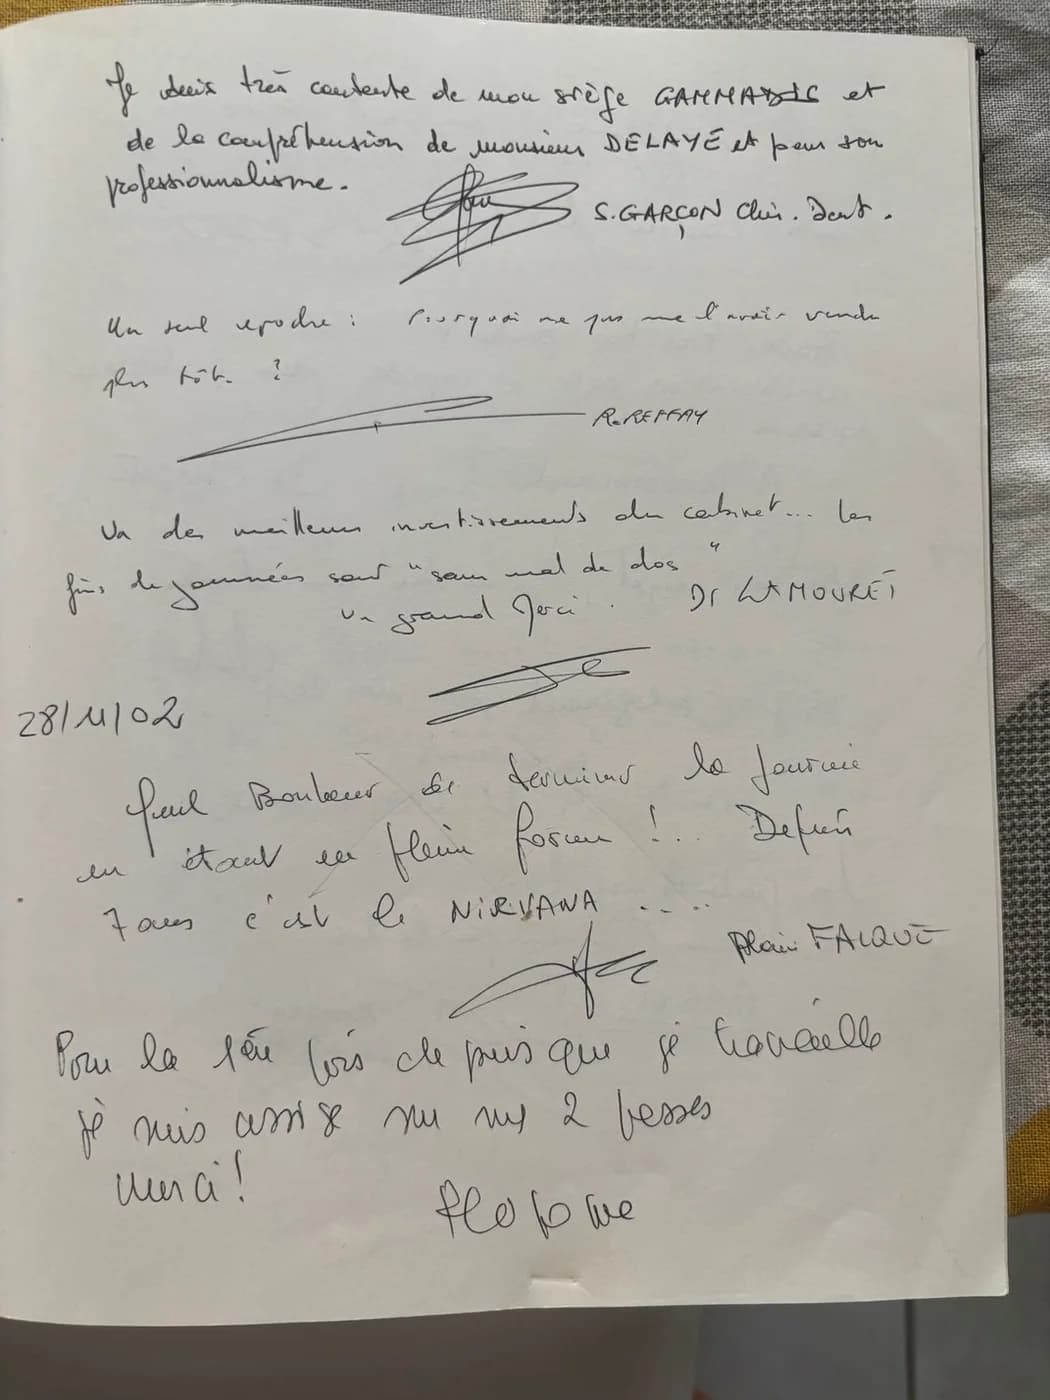 Je suis très contente de mon siège GAMMADIS et
de la compréhension de monsieur DELAYE et pour son
professionnalisme.
S. GARÇON Chir. Dent.
Un seul reproche : Pourquoi ne pas me l'avoir vendu
plus tôt. ?
R. REFFAY
Un des meilleurs investissements du cabinet... les
fins de journées sont "sans mal de dos"
Un grand Merci. Dr LAMOURET
28/11/02
Quel Bonheur de terminer la journée
en étant en pleine forme !.. Depuis
7 ans c'est le NIRVANA ....
Alain FALQUE
Pour la 1ère fois depuis que je travaille
je suis assise sur mes 2 fesses
Merci !